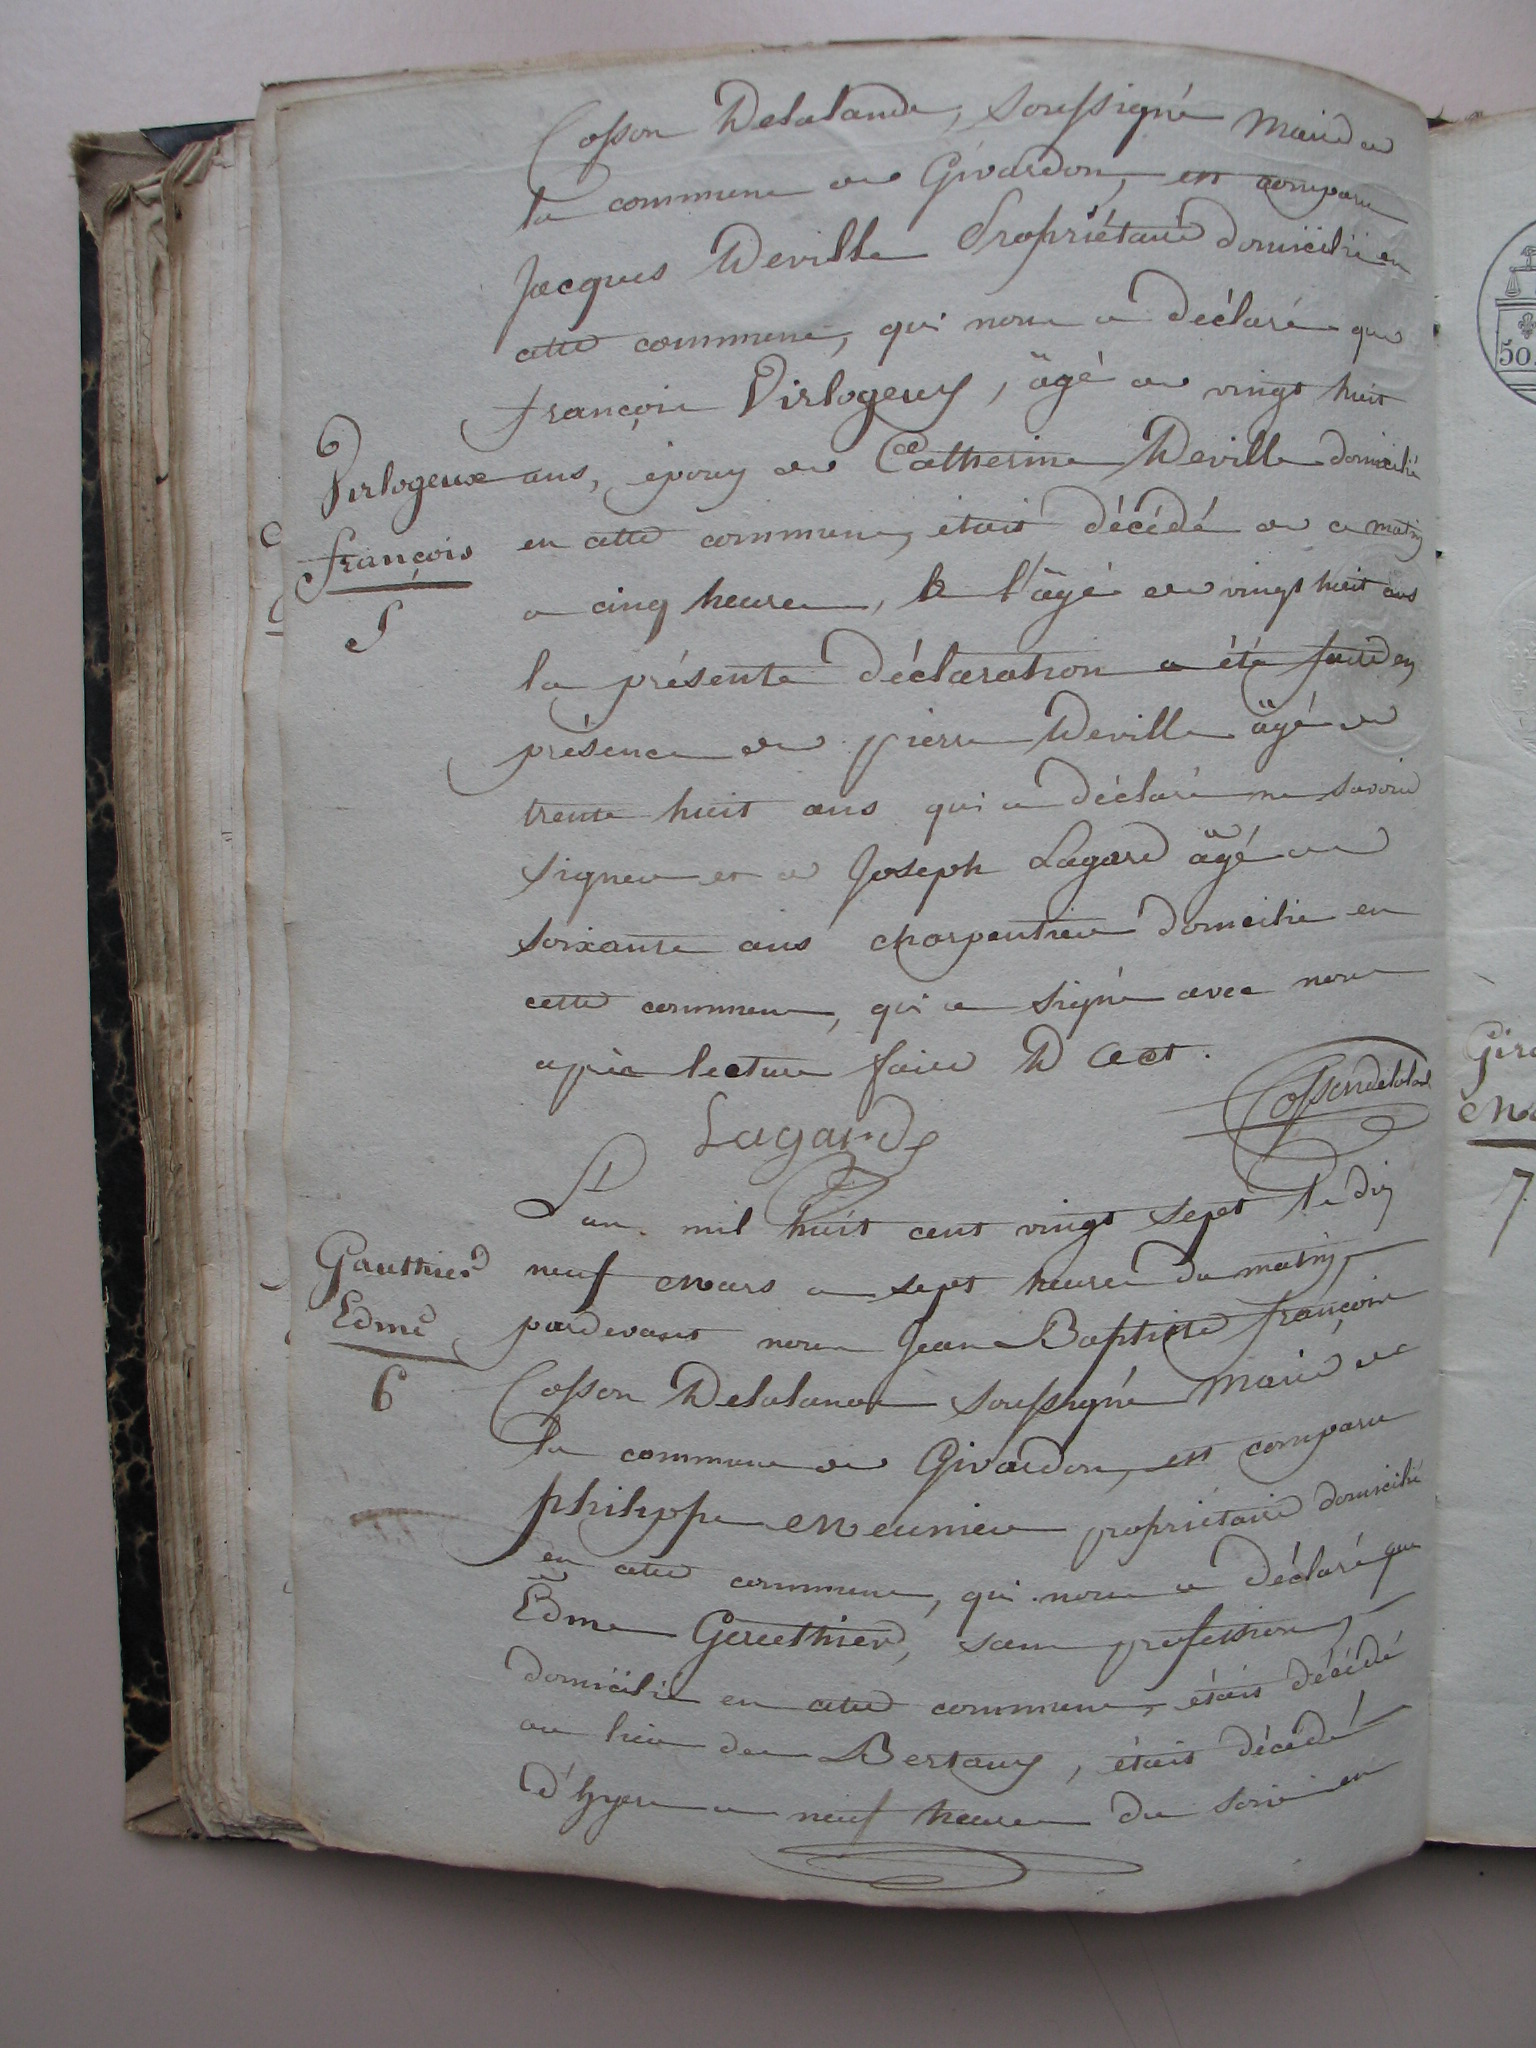 Cosson Delalande, soussigné Maire de
la commune de Givardon, est comparu
Jacques Deville Propriétaire domicilié en
cette commune, qui nous a déclaré que
françois Virlogeux, agé de vingt huit
Virlogeux
françois
5
ans, epoux de Catherine Deville domicilié
en cette commune, etait décédé de ce matin
a cinq heures, a l'agé de vingt huit ans
la présente déclaration a été faite en
présence de pierre Deville agé de
trente huit ans qui a déclaré ne savoir
signer et de Joseph Lagard agé de
soixante ans charpentier domicilié en
cette commune, qui a signé avec nous
après lecture faite D act.
Lagarde
Cossondelalande
L'an mil huit cent vingt sept le dix
Gauthier
Edmé
6
neuf Mars a sept heures du matin,
pardevant nous Jean Baptiste françois
Cosson Delalande soussigné Maire de
la commune de Givardon, est comparu
philippe Meunier propriétaire domicilié
en cette commune, qui nous a déclaré que
Edme Gauthier, sans profession,
domicilié en cette commune, était décédé
au lieu des Bertaux, était décédé
d'hyer a neuf heures du soir en
Gir
Ma
7
50